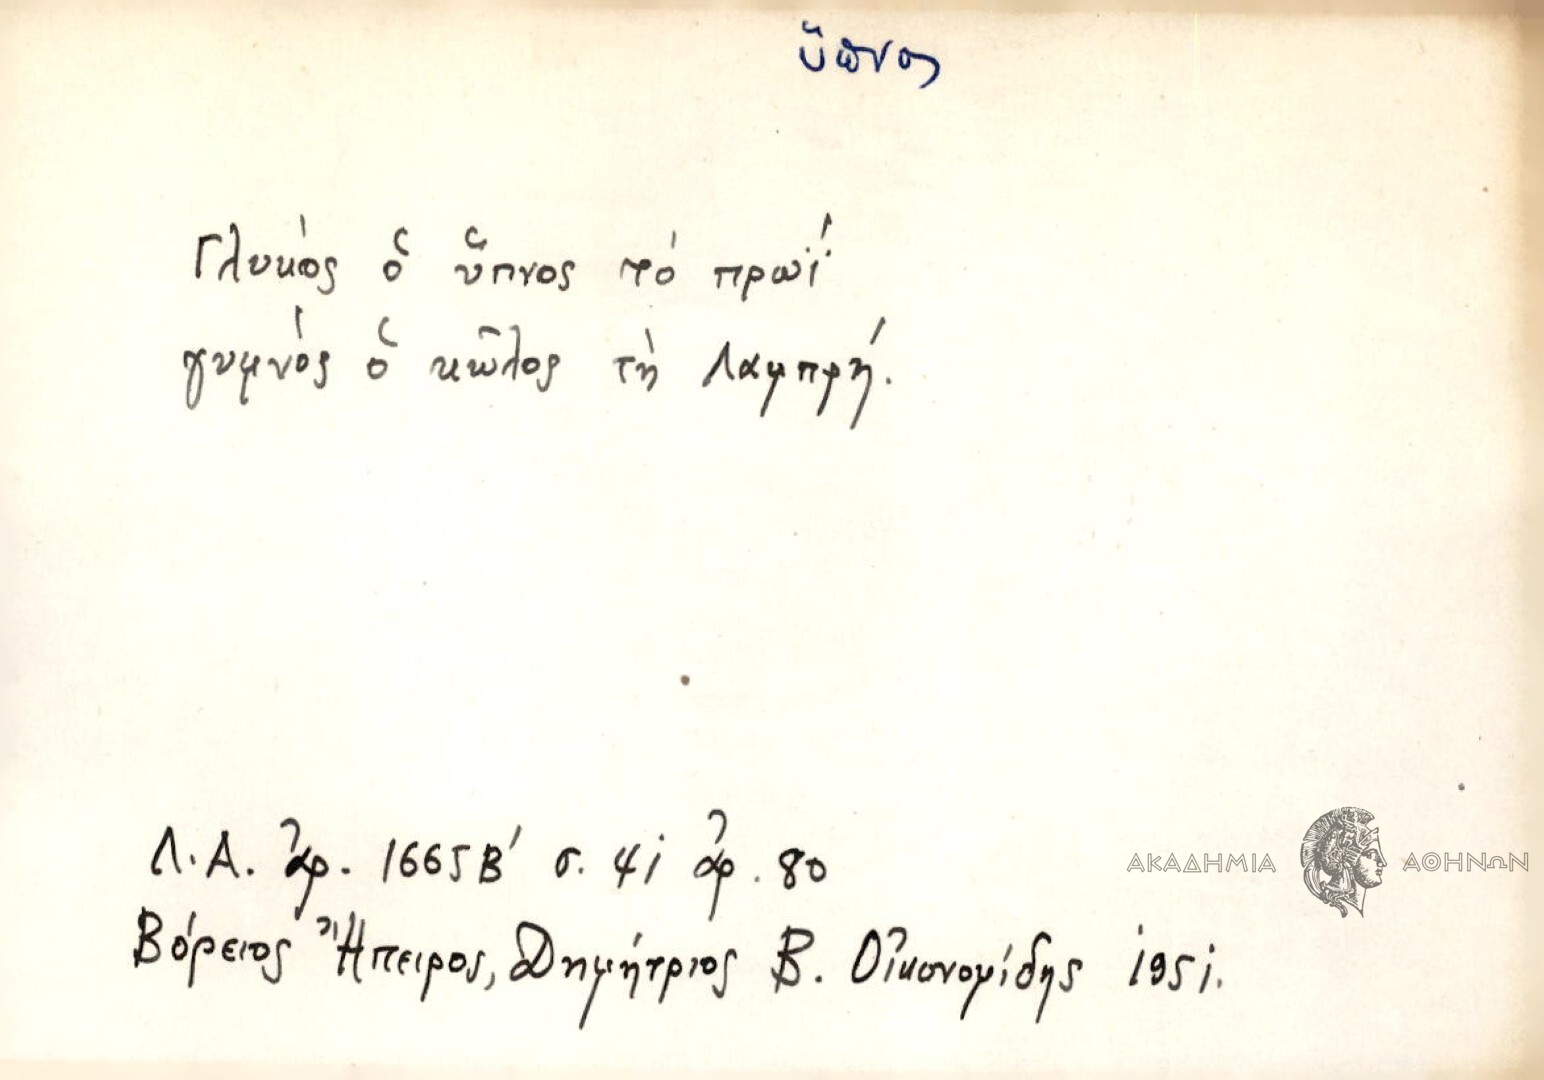 ὕπνος
Γλυκὸς ὁ ὕπνος τό πρωΐ
γυμνὸς ὁ κῶλος τὴ Λαμπρή.
Λ.Α. ἀρ. 1665Β' σ. 41 ἀρ. 80
ΑΚΑΔΗΜΙΑ ΑΘΗΝΩΝ
Βόρειος Ἤπειρος, Δημήτριος Β. Οἰκονομίδης 1951.